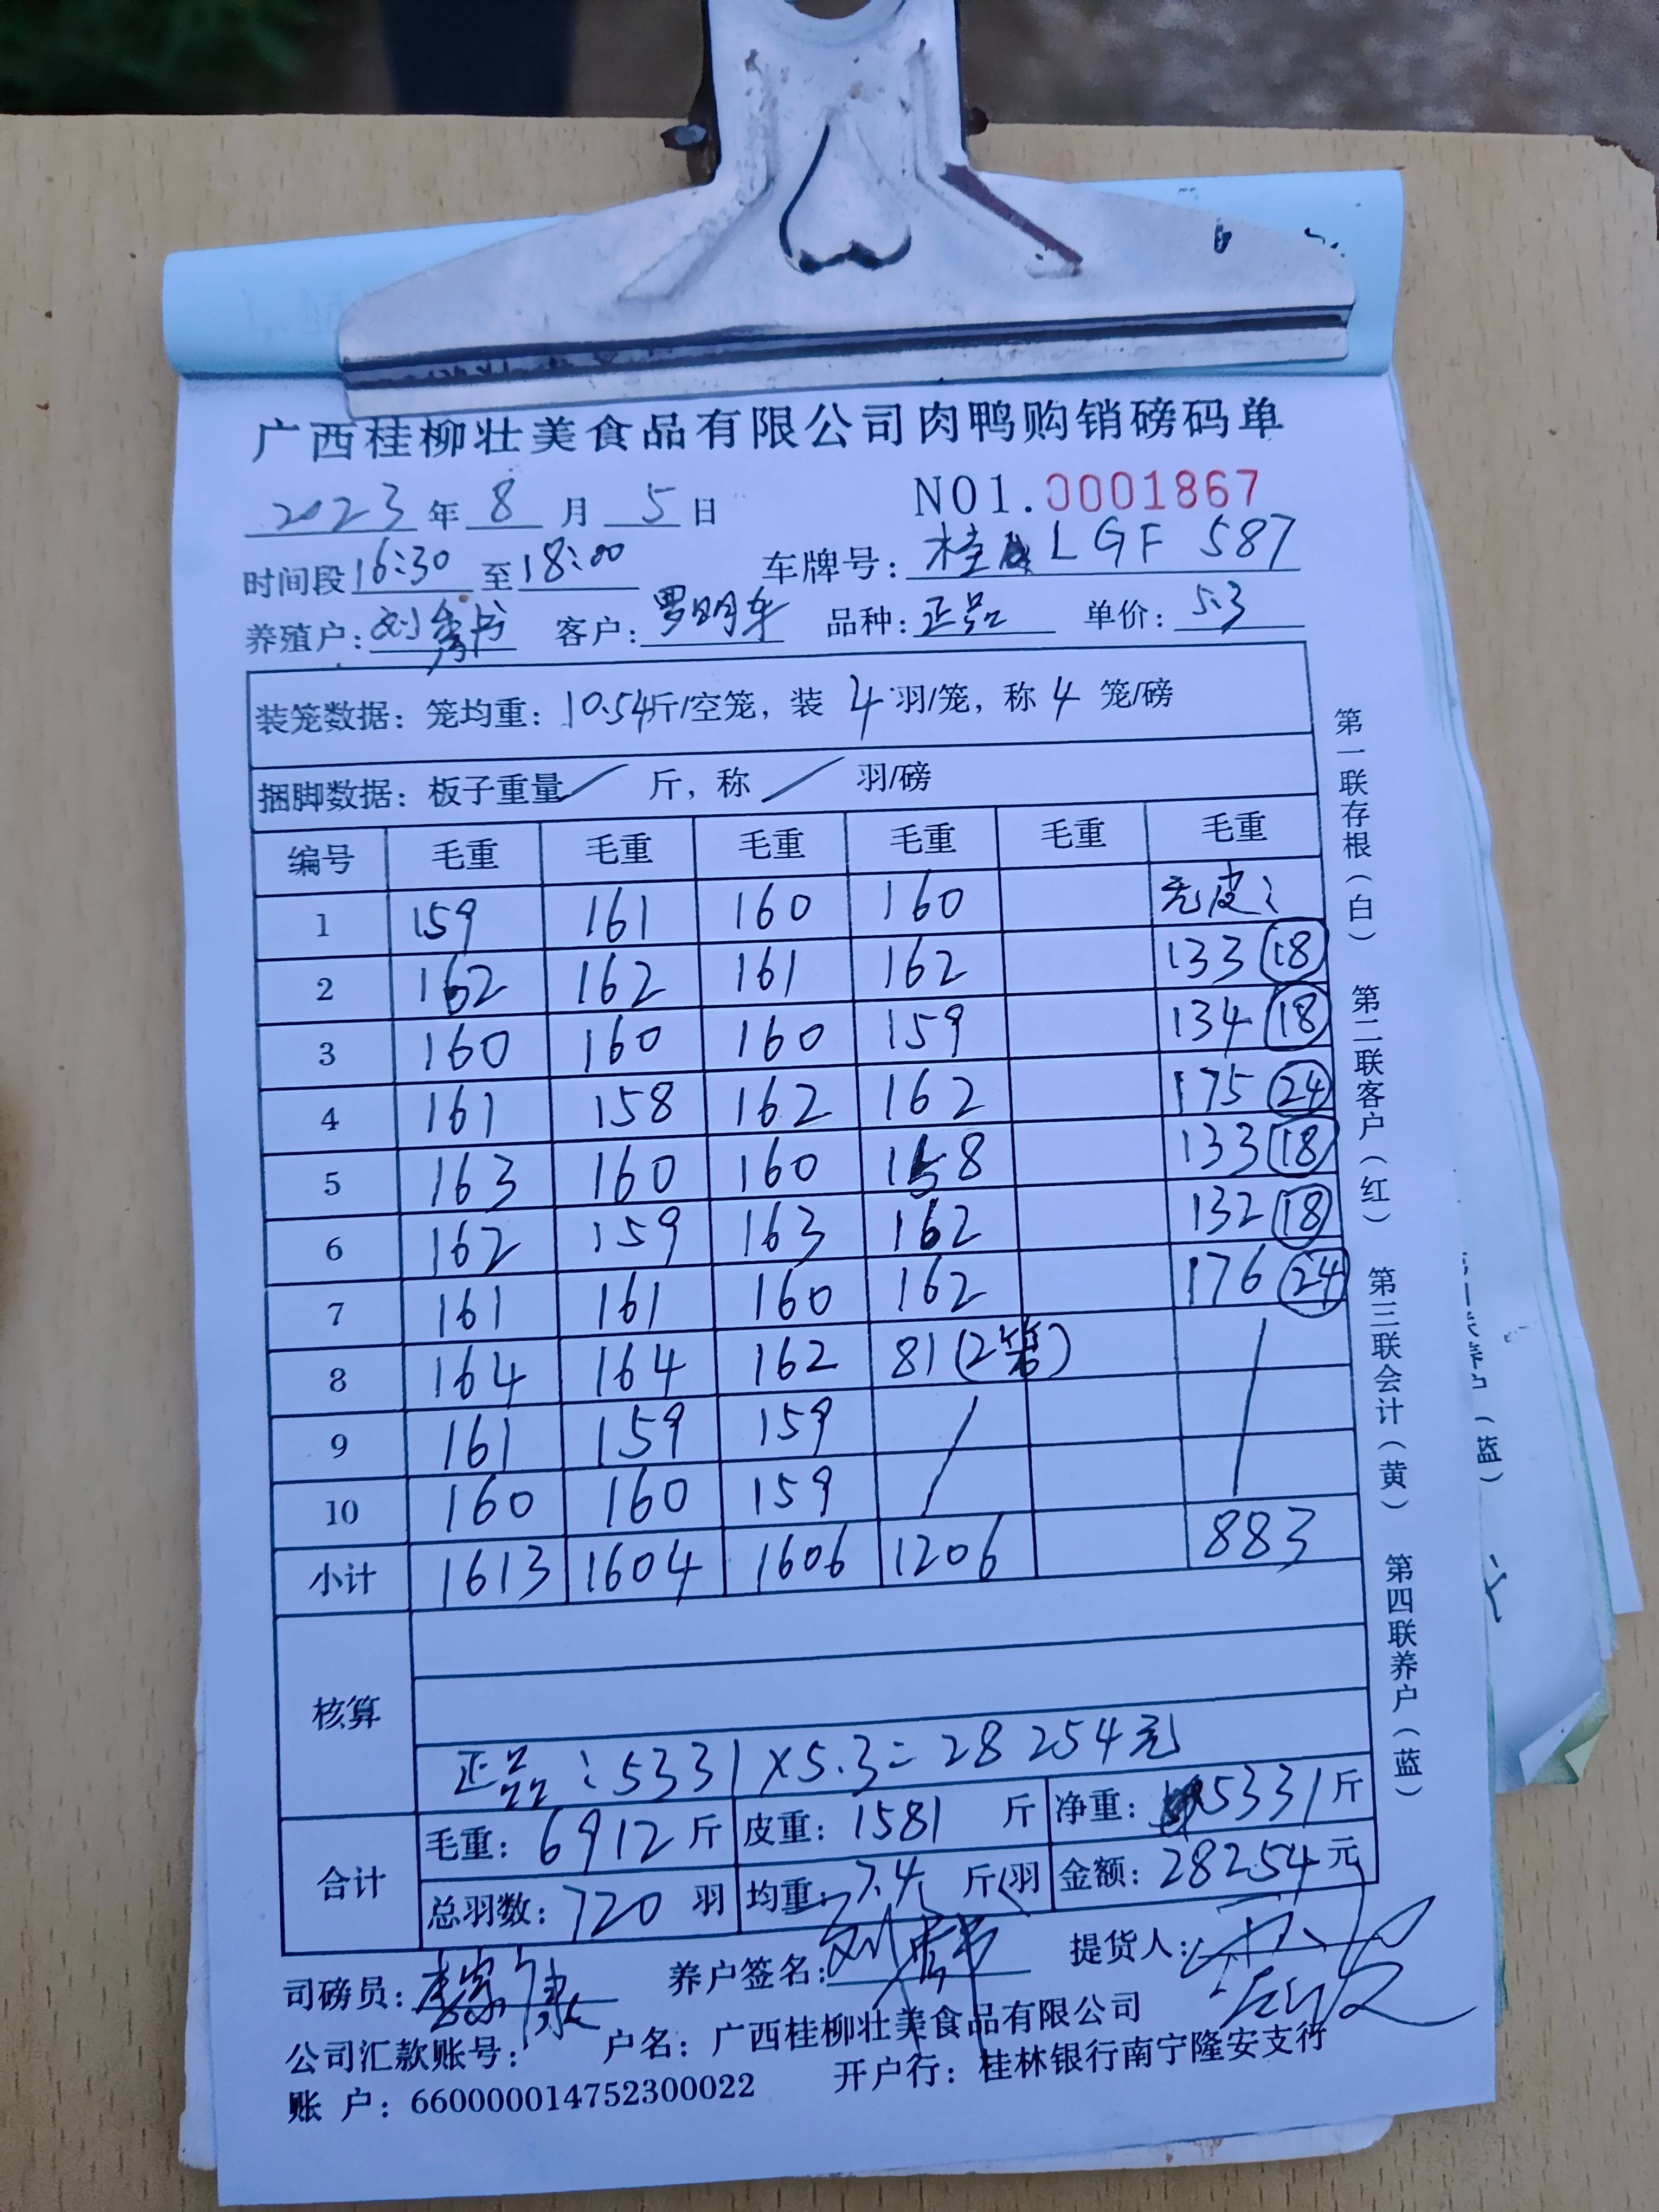 广西桂柳壮美食品有限公司肉鸭购销磅码单
2023年8月5日 NO1.0001867
时间段16:30至18:00 车牌号:桂LGF 587
养殖户: 客户:罗明车 品种:正品 单价:5.3
装笼数据:笼均重:10.54斤/空笼,装4羽/笼,称4笼/磅
捆脚数据:板子重量/斤,称/羽/磅
编号 毛重 毛重 毛重 毛重 毛重 毛重
1 159 161 160 160 毛皮:
2 162 162 161 162 133 18
3 160 160 160 159 134 18
4 161 158 162 162 175 24
5 163 160 160 158 133 18
6 162 159 163 162 132 18
7 161 161 160 162 176 24
8 164 164 162 81(2笼) /
9 161 159 159 /
10 160 160 159
小计 1613 1604 1606 1206 883
核算
正品:5331×5.3=28254元
合计 毛重:6912斤 皮重:1581斤 净重:5331斤
总羽数:720羽 均重:7.4斤/羽 金额:28254元
司磅员: 养户签名: 提货人:
公司汇款账号: 户名:广西桂柳壮美食品有限公司
账 户:660000014752300022 开户行:桂林银行南宁隆安支行
第一联存根(白) 第二联客户(红) 第三联会计(黄) 第四联养户(蓝)